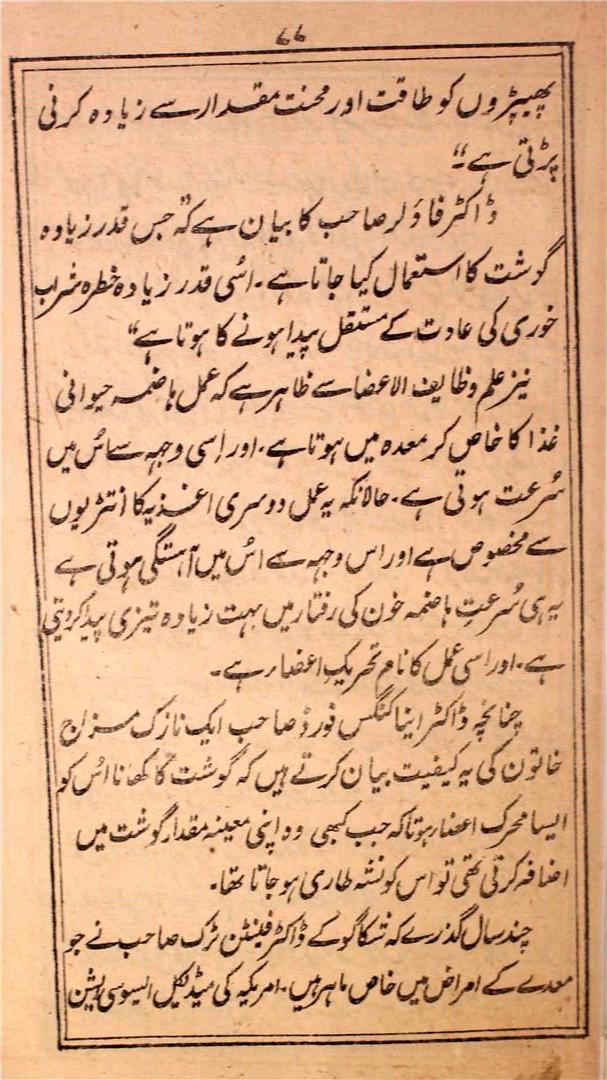 ۷۷
پھیپڑوں کو طاقت اور محنت مقدار سے زیادہ کرنی
پڑتی ہے“۔
ڈاکٹر فاؤلر صاحب کا بیان ہے کہ ”جس قدر زیادہ
گوشت کا استعمال کیا جاتا ہے۔ اسُی قدر زیادہ خطرہ شراب
خوری کی عادت کے مستقل پیدا ہونے کا ہوتا ہے“
نیز علم وظایف الاعضا سے ظاہر ہے کہ عمل ہاضمہ حیوانی
غذا کا خاص کر معدہ میں ہوتا ہے۔ اور اِسی وجہہ سے اس میں
سُرعت ہوتی ہے۔ حالانکہ یہ عمل دوسری اغذیہ کا انتڑیوں
سے مخصوص ہے اور اس وجہہ سے اسُ میں آہستگی ہوتی ہے
یہ ہی سُرعتِ ہاضمہ خون کی رفتار میں بہت زیادہ تیزی پیدا کر دیتی
ہے۔ اور اسی عمل کا نام تحریکِ اعضاء ہے۔
چنانچہ ڈاکٹر اینا کنگس فورڈ صاحب ایک نازک مزاج
خاتون کی یہ کیفیت بیان کرتے ہیں کہ گوشت کا کھانا اسُ کو
ایسا محرک اعضاء ہوتا کہ جب کبھی وہ اپنی معینہ مقدار گوشت میں
اضافہ کرتی تھی تو اس کو نشہ طاری ہو جاتا تھا۔
چند سال گذرے کہ شکاگو کے ڈاکٹر فینٹن ٹرک صاحب نے جو
معدے کے امراض میں خاص ماہر ہیں۔ امریکیہ کی میڈیکل ایسوسی ایشن